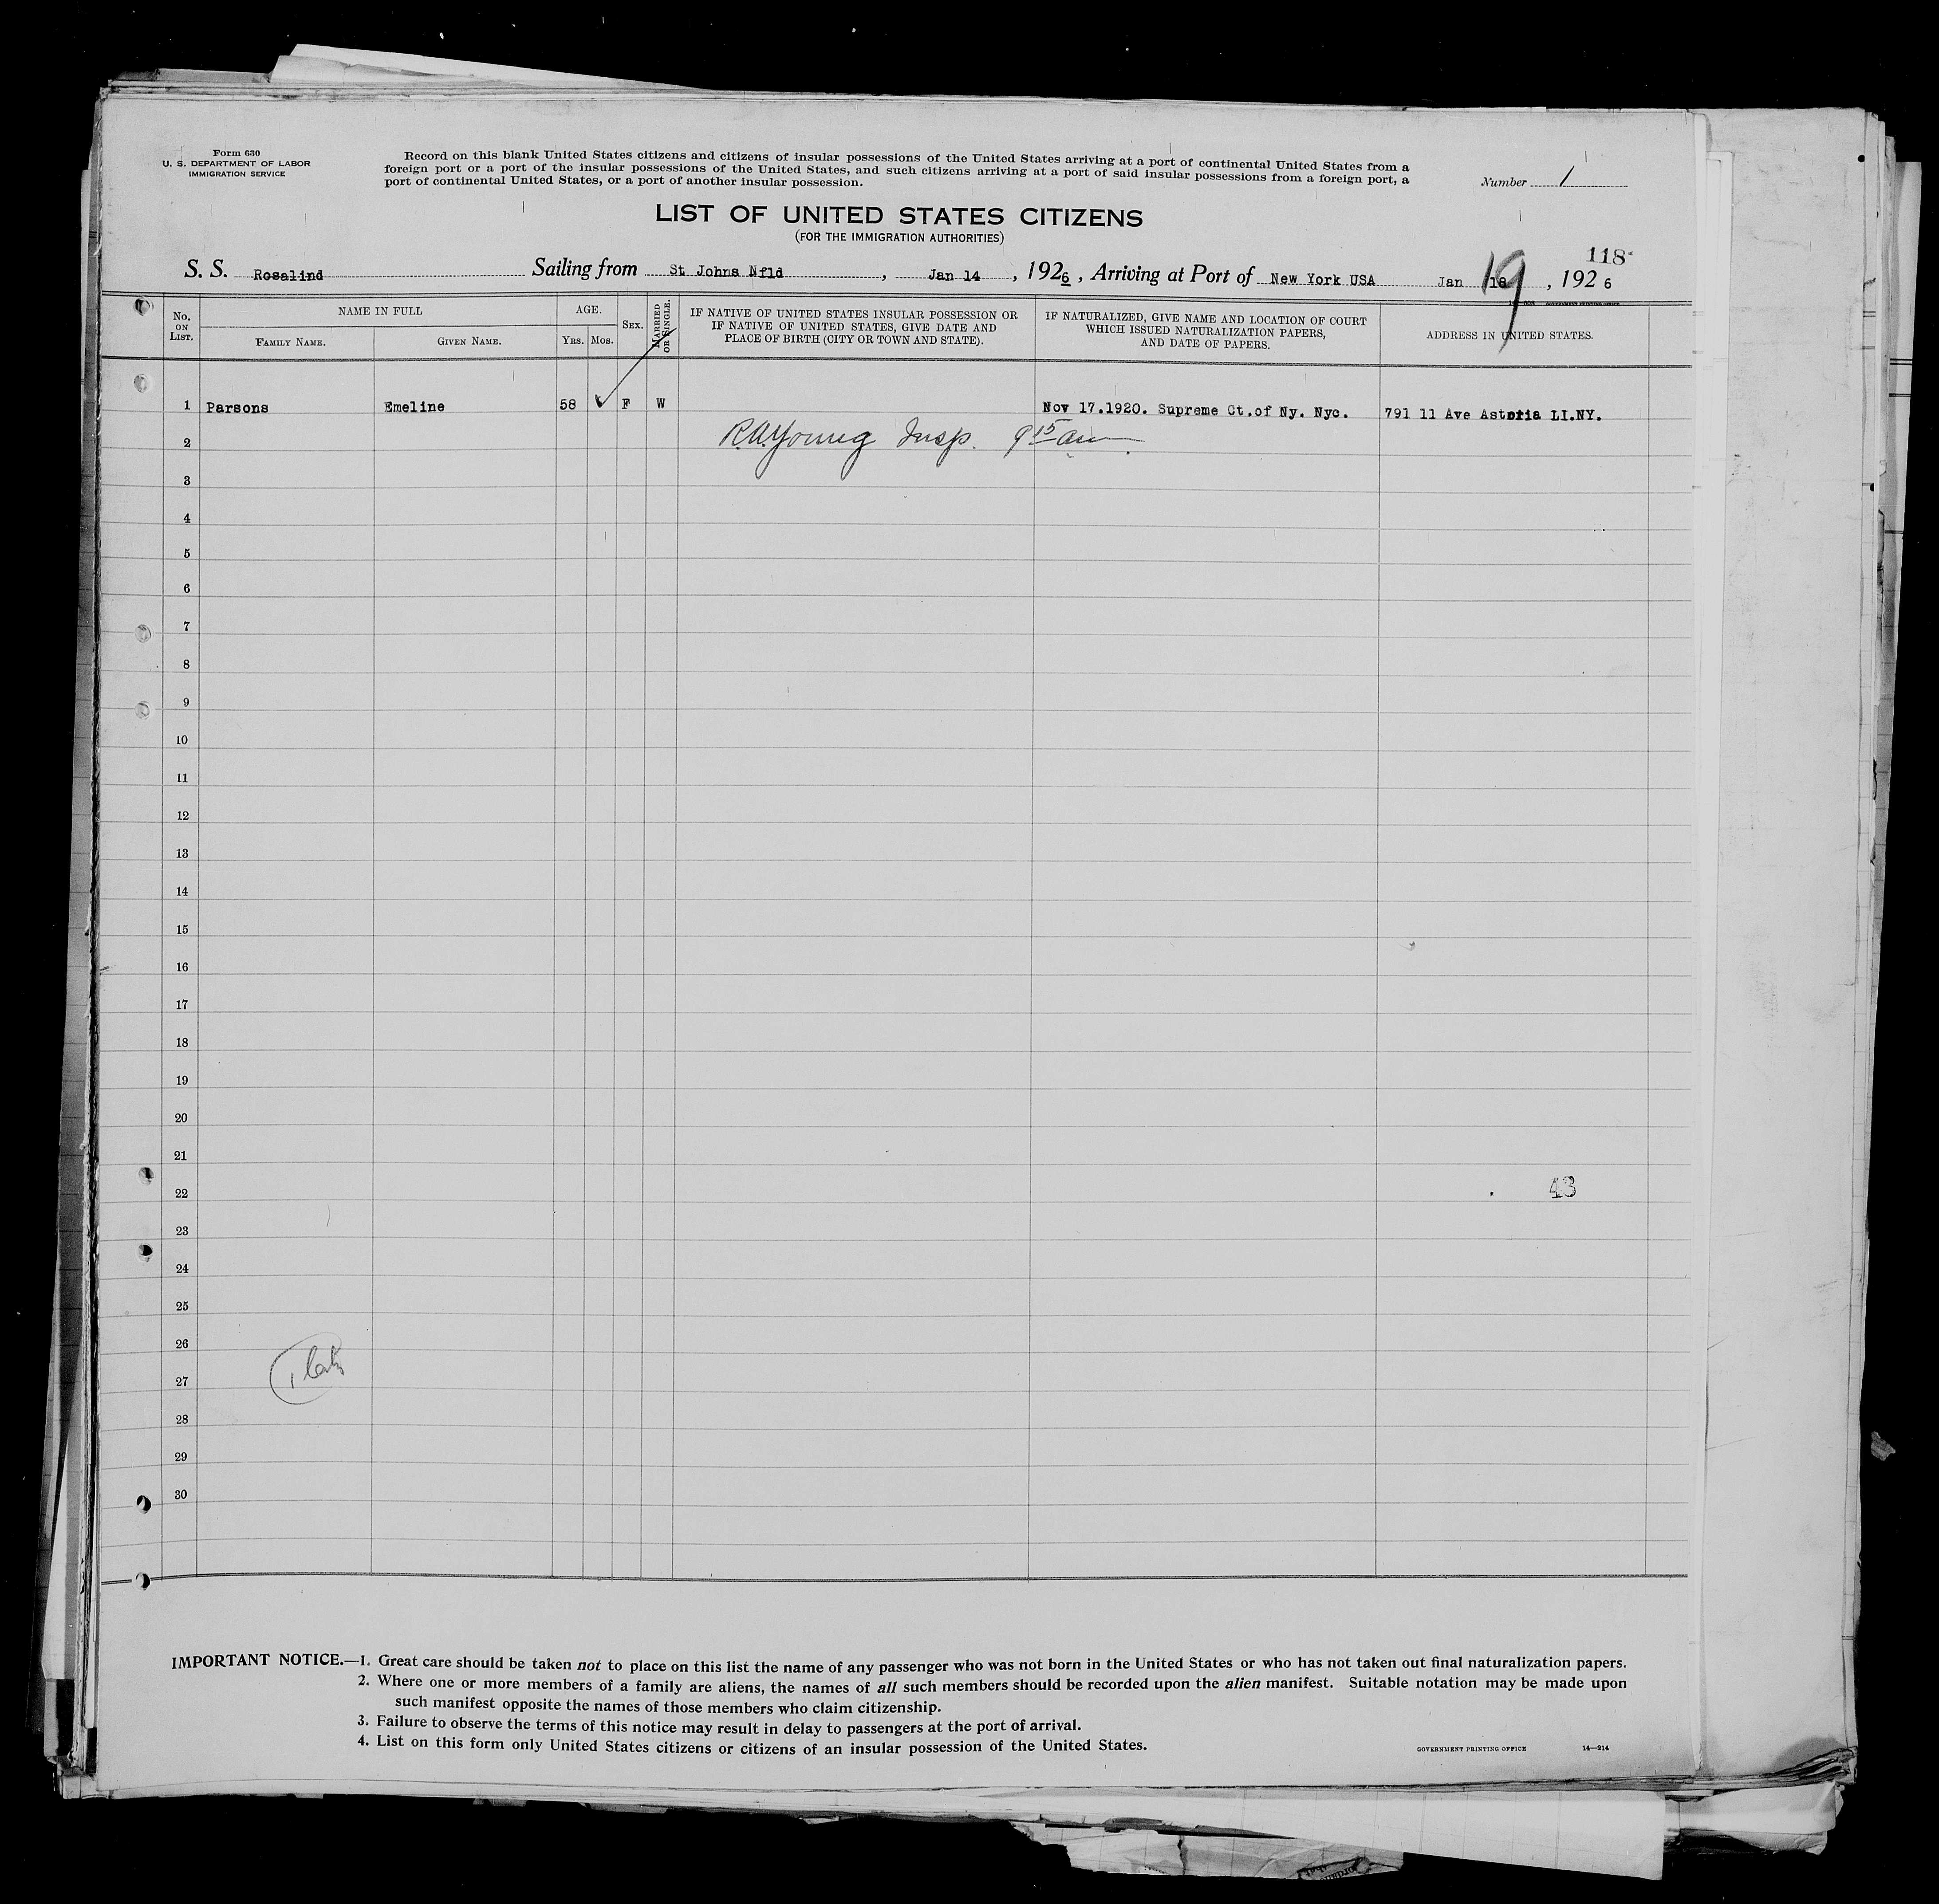 Form 630
U. S. DEPARTMENT OF LABOR
IMMIGRATION SERVICE
Record on this blank United States citizens and citizens of insular possessions of the United States arriving at a port of continental United States from a
foreign port or a port of the insular possessions of the United States, and such citizens arriving at a port of said insular possessions from a foreign port, a
port of continental United States, or a port of another insular possession.
Number 1
LIST OF UNITED STATES CITIZENS
(FOR THE IMMIGRATION AUTHORITIES)
118
S. S. Rosalind Sailing from St Johns Nfld , Jan 14 , 1926 , Arriving at Port of New York USA Jan 19 , 1926
No. ON LIST. NAME IN FULL FAMILY NAME. GIVEN NAME. AGE. YRS. MOS. SEX. MARRIED OR SINGLE.
IF NATIVE OF UNITED STATES INSULAR POSSESSION OR
IF NATIVE OF UNITED STATES, GIVE DATE AND
PLACE OF BIRTH (CITY OR TOWN AND STATE).
IF NATURALIZED, GIVE NAME AND LOCATION OF COURT
WHICH ISSUED NATURALIZATION PAPERS,
AND DATE OF PAPERS.
ADDRESS IN UNITED STATES.
1 Parsons Emeline 58 F W Nov 17.1920. Supreme Ct.of Ny. Nyc. 791 11 Ave Astoria LI.NY.
2 R.A.Young Insp. 9 15 am
3
4
5
6
7
8
9
10
11
12
13
14
15
16
17
18
19
20
21
22 43
23
24
25
26
27
28
29
30
IMPORTANT NOTICE.—1. Great care should be taken not to place on this list the name of any passenger who was not born in the United States or who has not taken out final naturalization papers.
2. Where one or more members of a family are aliens, the names of all such members should be recorded upon the alien manifest. Suitable notation may be made upon
such manifest opposite the names of those members who claim citizenship.
3. Failure to observe the terms of this notice may result in delay to passengers at the port of arrival.
4. List on this form only United States citizens or citizens of an insular possession of the United States.
GOVERNMENT PRINTING OFFICE 14—214